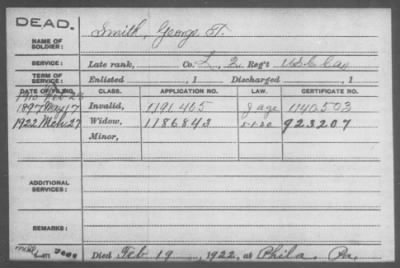 DEAD.
NAME OF SOLDIER: Smith, George T.
SERVICE: Late rank, Co. L, 2 Reg't U.S.C. Cav
TERM OF SERVICE: Enlisted , 1 Discharged , 1
DATE OF FILING. CLASS. APPLICATION NO. LAW. CERTIFICATE NO.
1897 May 17 Invalid, 1191465 g age 1140503
1922 Mch 27 Widow, 1186843 5-1-20 923207
Minor,
ADDITIONAL SERVICES:
REMARKS:
Died Feb 19, 1922, at Phila. Pa.